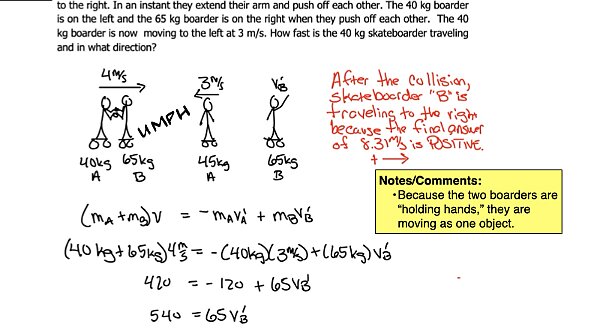 to the right. In an instant they extend their arm and push off each other. The 40 kg boarder
is on the left and the 65 kg boarder is on the right when they push off each other. The 40
kg boarder is now moving to the left at 3 m/s. How fast is the 40 kg skateboarder traveling
and in what direction?
4 m/s
3 m/s
VB'
UMPH
40kg 65kg
A B
45kg
A
65kg
B
After the collision,
skateboarder "B" is
traveling to the right
because the final answer
of 8.31 m/s is POSITIVE.
+ →
Notes/Comments:
•Because the two boarders are
"holding hands," they are
moving as one object.
(mA + mB)v = -mAVA' + mBVB'
(40 kg + 65kg) 4 m/s = -(40kg)(3 m/s) + (65kg) VB'
420 = -120 + 65VB'
540 = 65VB'